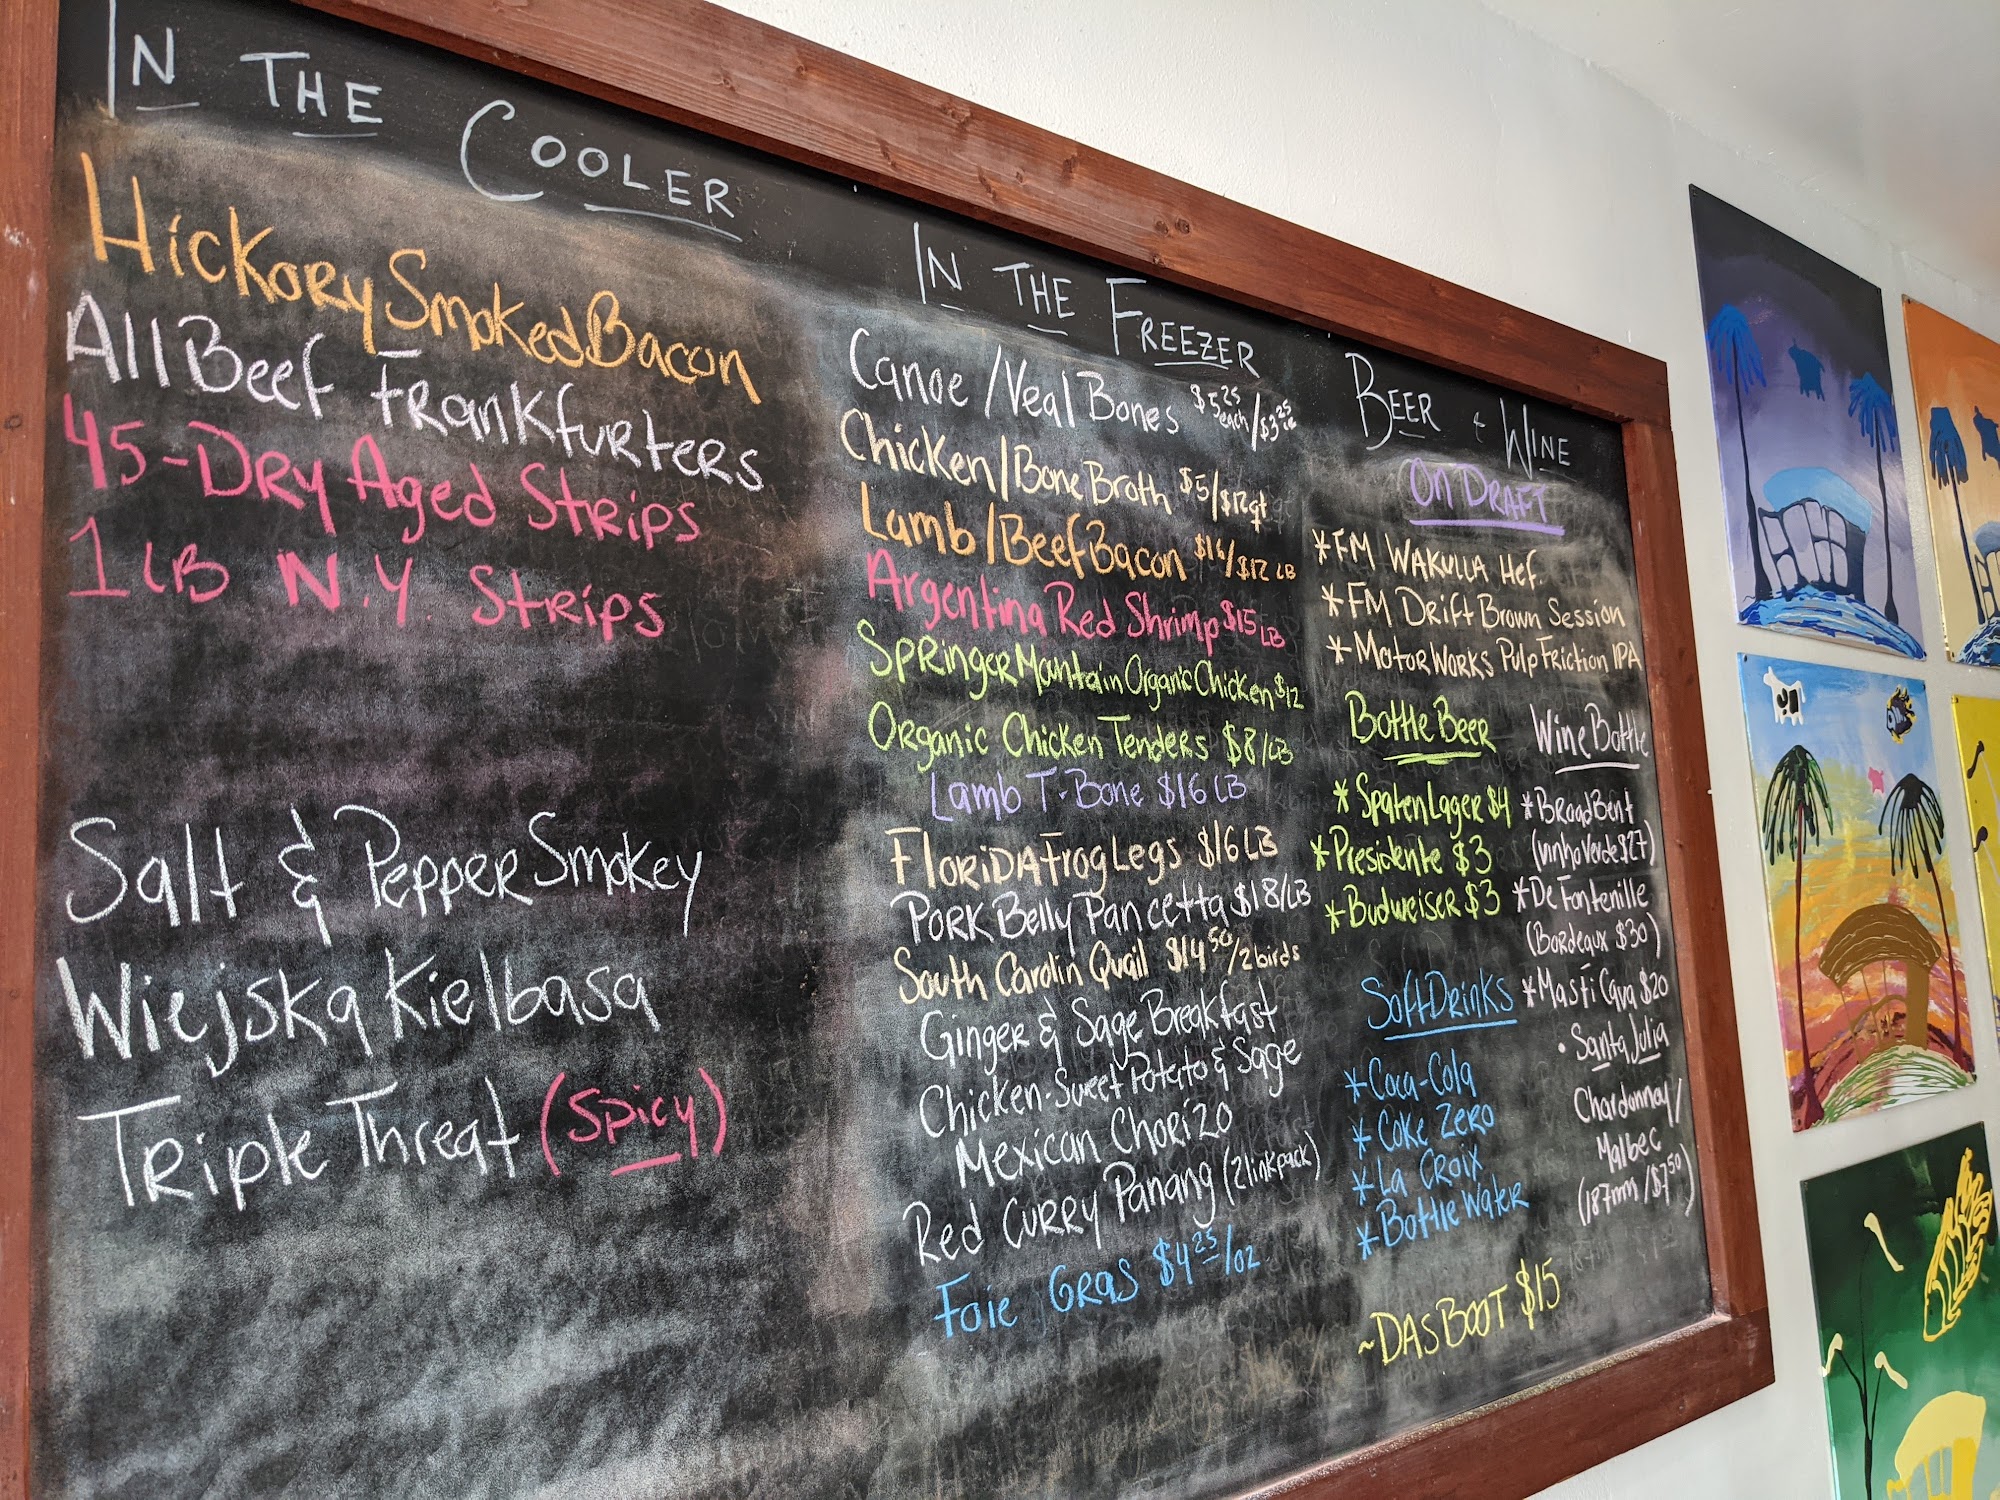 IN THE COOLER
Hickory Smoked Bacon
All Beef Frankfurters
45-Dry Aged Strips
1 LB N.Y. Strips
Salt & Pepper Smokey
Wiejska Kielbasa
Triple Threat (Spicy)
IN THE FREEZER
Canoe/Neal Bones $5.25 each/$3.25
Chicken/Bone Broth $5/$12qt
Lamb/Beef Bacon $14/$12 LB
Argentina Red Shrimp $15 LB
Springer Mountain Organic Chicken $12
Organic Chicken Tenders $8/LB
Lamb T-Bone $16 LB
Florida Frog Legs $16 LB
Pork Belly Pancetta $18/LB
South Carolin Quail $14.50/2birds
Ginger & Sage Breakfast
Chicken-Sweet Potato & Sage
Mexican Chorizo
Red Curry Panang (2linkpack)
Foie Gras $4.25/oz
BEER & WINE
On Draft
*FM Wakulla Hef.
*FM Drift Brown Session
*Motorworks Pulp Friction IPA
Bottle Beer
*Spaten Lager $4
*Presidente $3
*Budweiser $3
Soft Drinks
*Coca-Cola
*Coke Zero
*La Croix
*Bottle Water
Wine Bottle
*BroadBent
(vinho verde $27)
*De Fontenille
(Bordeaux $30)
*Masfi Cava $20
•Santa Julia
Chardonnay/
Malbec
(187mm/$7.50)
~DAS BOOT $15